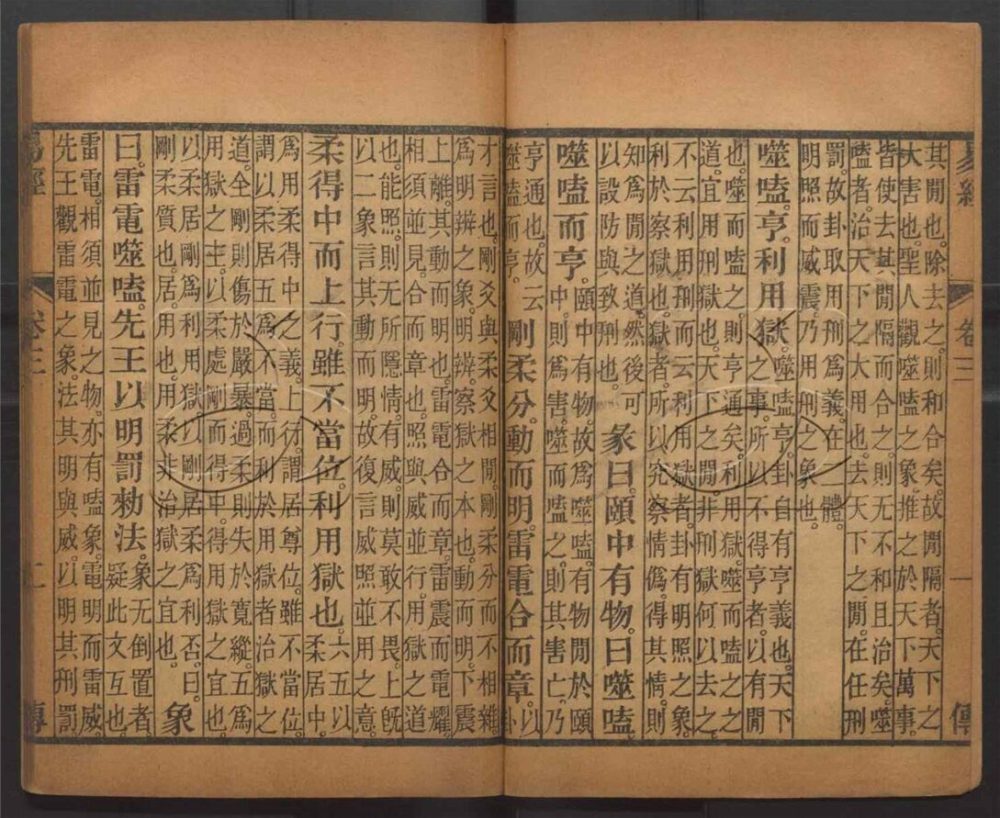 易經 卷三 一 傳
其閒也。除去之。則和合矣。故閒隔者。天下之
大害也。聖人觀噬嗑之象。推之於天下萬事。
皆使去其閒隔而合之。則无不和且治矣。噬
嗑者。治天下之大用也。去天下之閒。在任刑
罰。故卦取用刑爲義。在二體。
明照而威震。乃用刑之象也。
噬嗑。亨。利用獄。噬嗑亨。卦自有亨義也。天下
之事。所以不得亨者。以有閒
也。噬而嗑之。則亨通矣。利用獄。噬而嗑之之
道。宜用刑獄也。天下之閒。非刑獄何以去之。
不云利用刑而云利用獄者。卦有明照之象。
利於察獄也。獄者。所以究察情僞。得其情。則
知爲閒之道。然後可
以設防與致刑也。彖曰。頤中有物。曰噬嗑。
噬嗑而亨。頤中有物。故爲噬嗑。有物閒於頤
中。則爲害。噬而嗑之。則其害亡。乃
亨通也。故云
噬嗑而亨。剛柔分。動而明。雷電合而章。以
卦
才言也。剛爻與柔爻相閒。剛柔分而不相雜。
爲明辨之象。明辨。察獄之本也。動而明。下震
上離。其動而明也。雷電合而章。雷震而電耀。
相須並見。合而章也。照與威並行。用獄之道
也。能照。則无所隱情。有威。則莫敢不畏。上旣
以二象言其動而明。故復言威照並用之意。
柔得中而上行。雖不當位。利用獄也。六五以
柔居中。
爲用柔得中之義。上行。謂居尊位。雖不當位。
謂以柔居五爲不當。而利於用獄者。治獄之
道。全剛則傷於嚴暴。過柔則失於寬縱。五爲
用獄之主。以柔處剛而得中。得用獄之宜也。
以柔居剛爲利用獄。以剛居柔爲利否。曰。
剛柔。質也。居。用也。用柔非治獄之宜也。象
曰。雷電噬嗑。先王以明罰勑法。象无倒置者。
疑此文互也。
雷電。相須並見之物。亦有嗑象。電明而雷威。
先王觀雷電之象。法其明與威。以明其刑罰
易經 卷三 二 傳